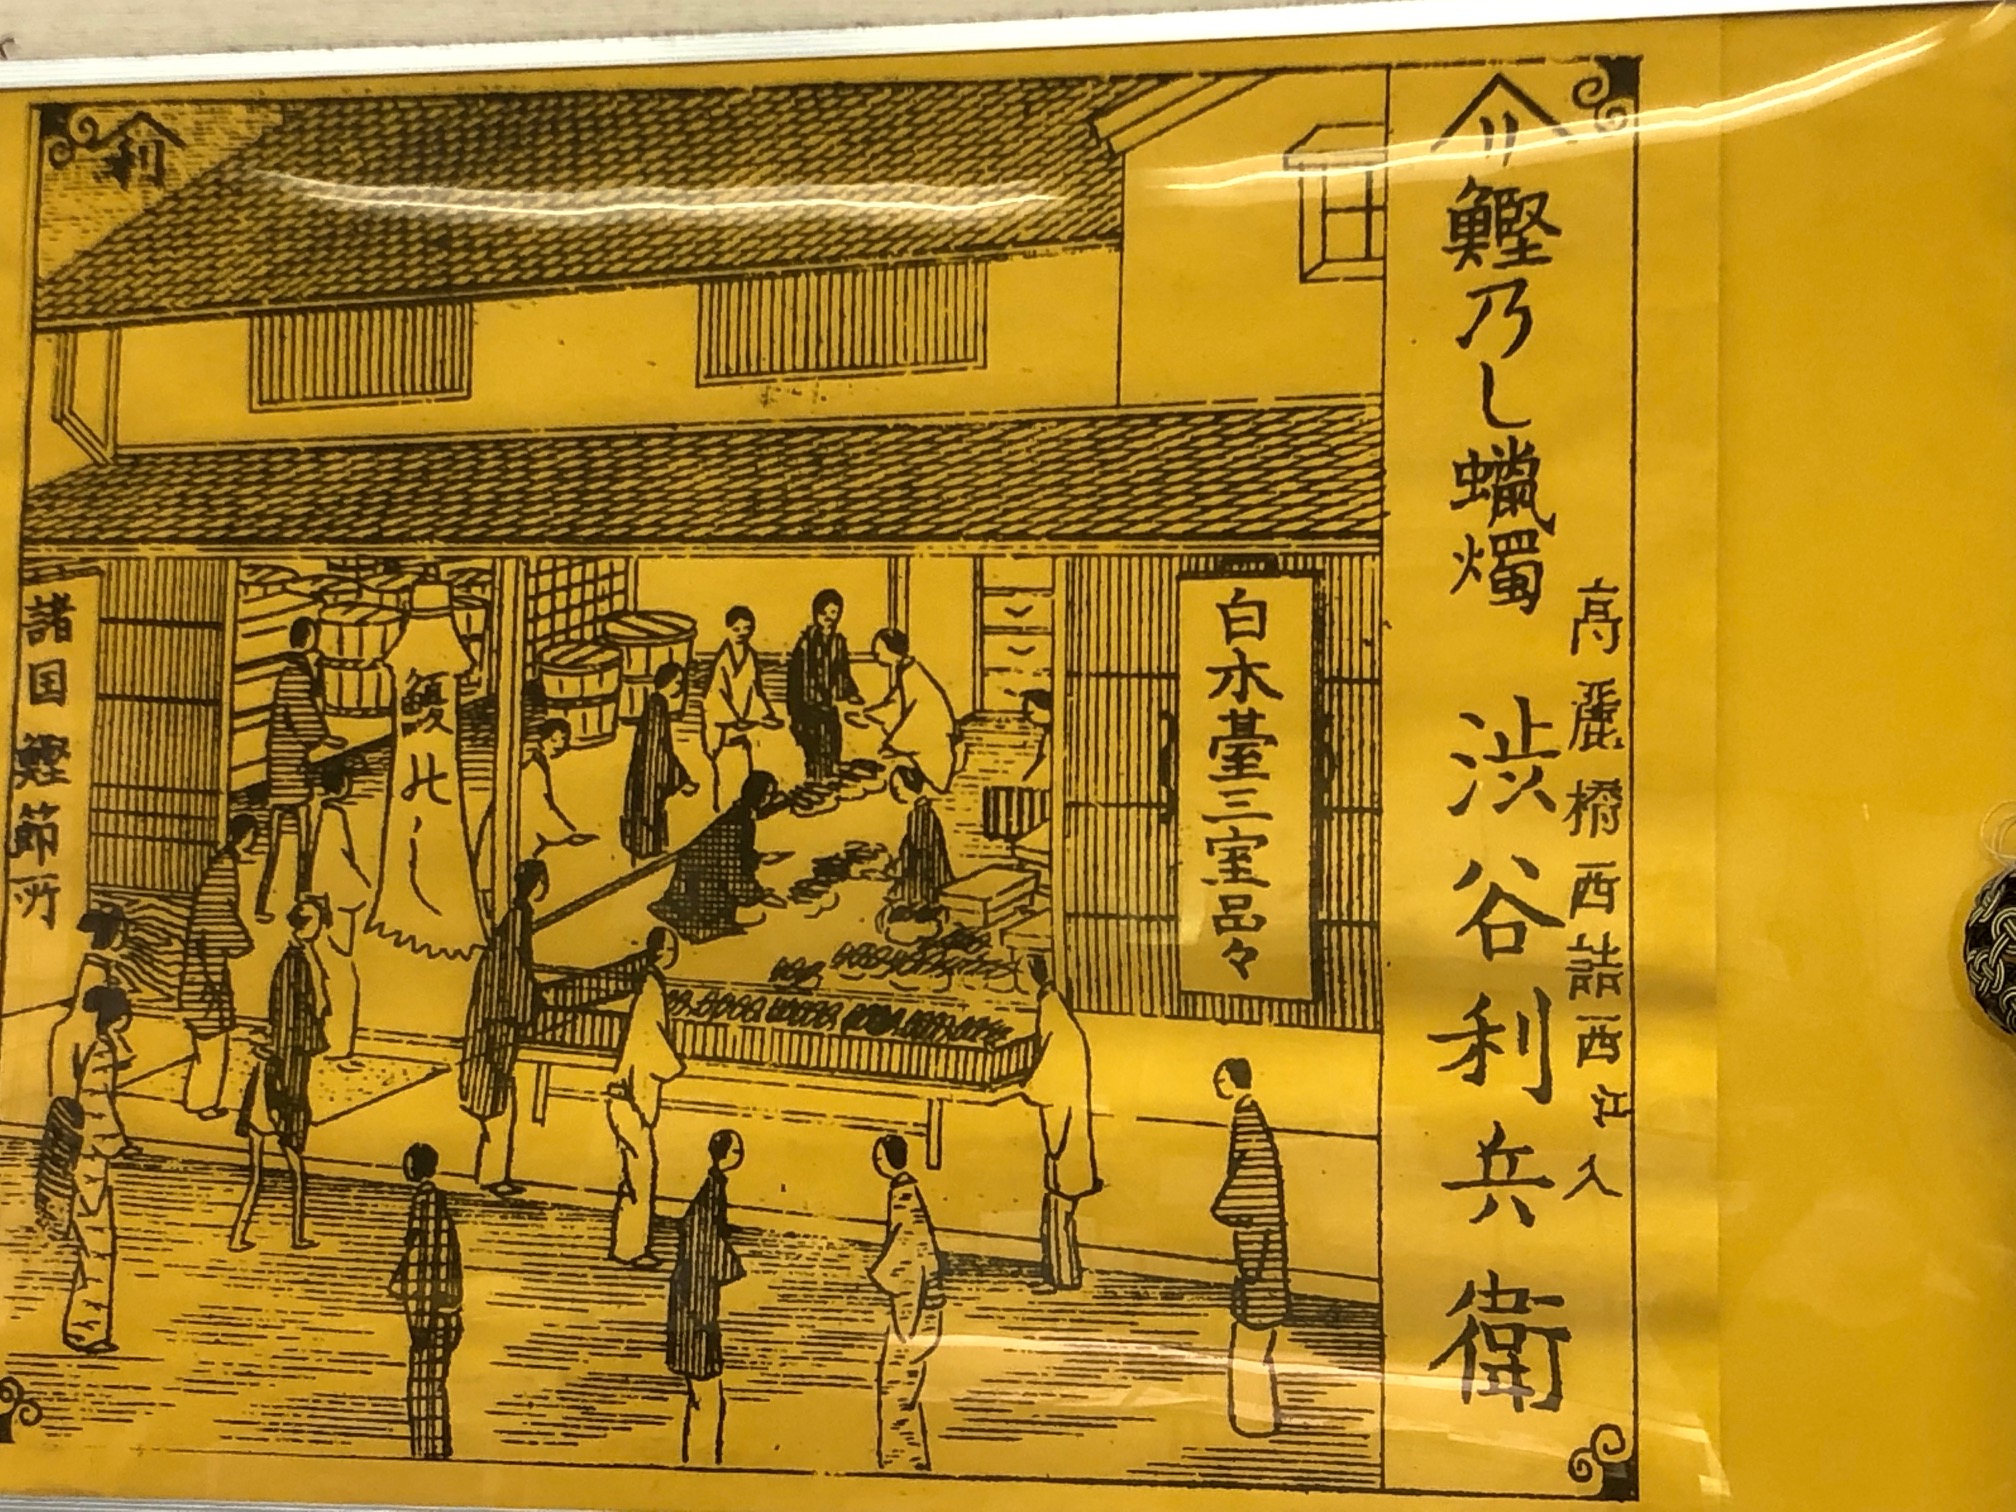 鰹乃し蠟燭 渋谷利兵衛
高麗橋西詰西江入
白木臺三宝品々
鰒此し
諸国鰹節所
利